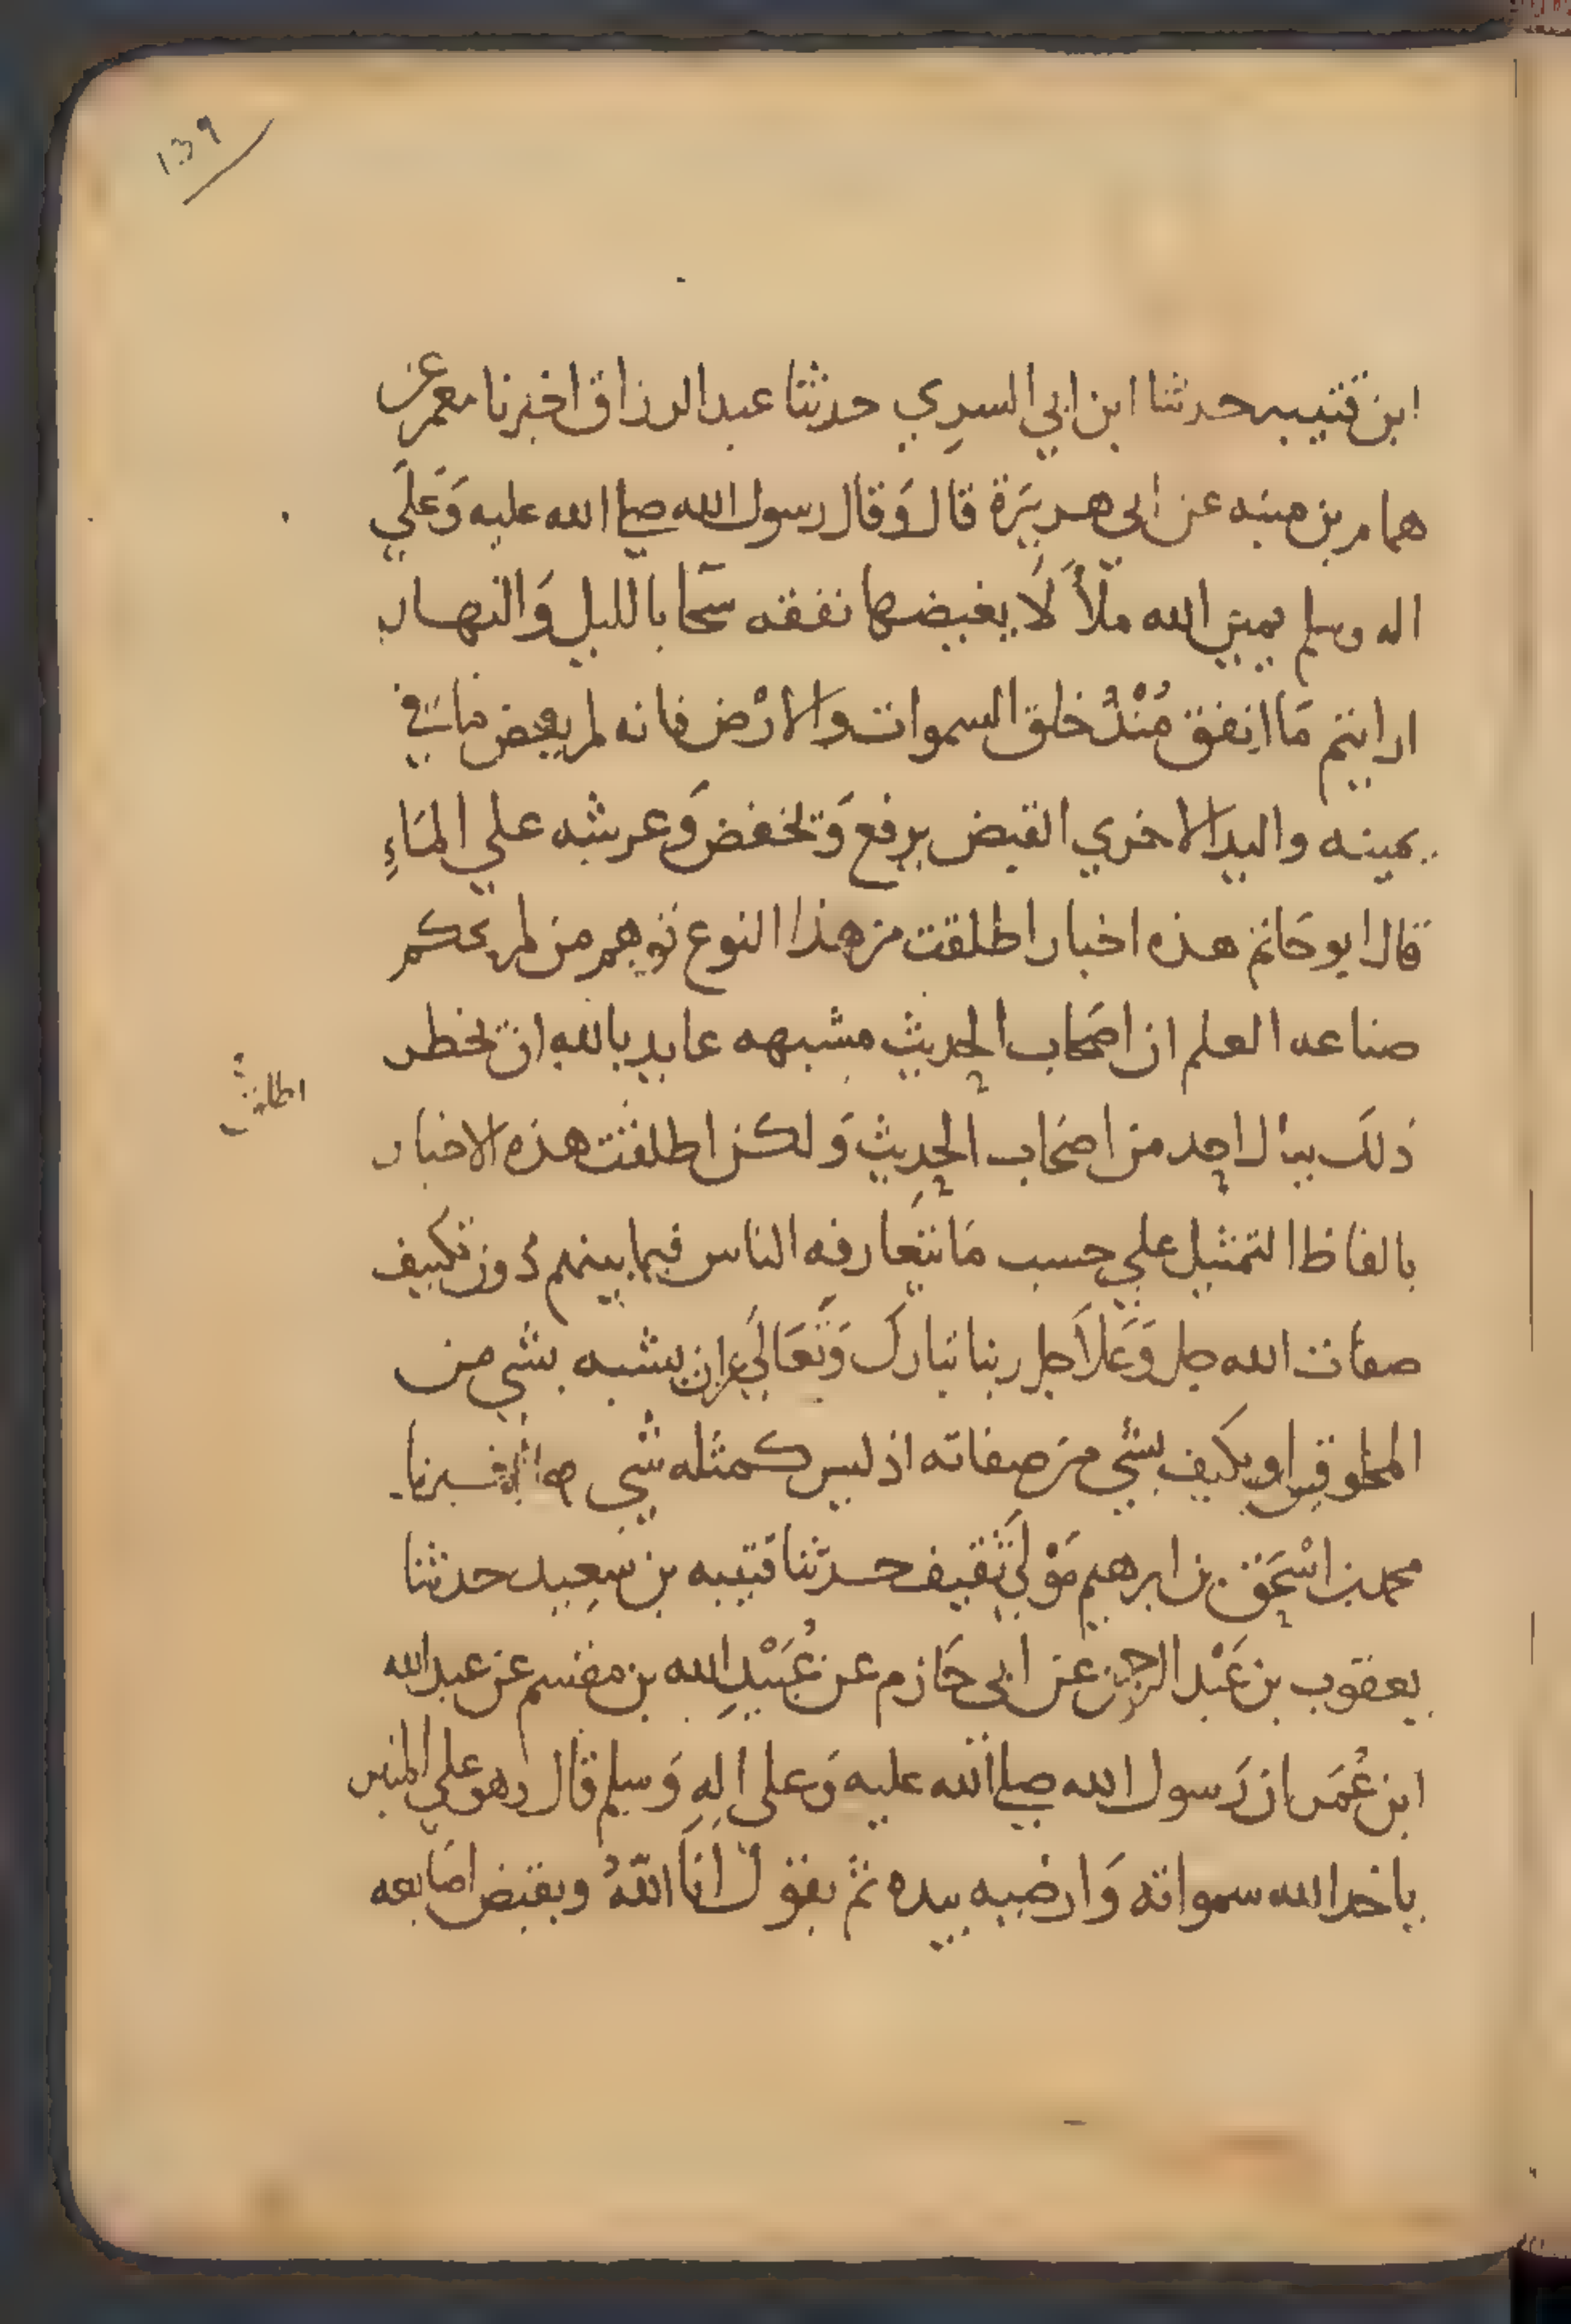 139
ابن قتيبه حدثنا ابن ابي السري حدثنا عبد الرزاق اخبرنا معمر عن
همام بن منبه عن ابي هريرة قال وَقال رسول الله صلى الله عليه وَعَلَي
اله وسلم يمين الله ملأ لَا يغيضها نفقه سحا بالليل وَالنهار
ارايتم مَا انفق مُنْذُ خلق السموات والارْض فانه لم يغض مَا في
يمينه واليد الاخري القبض يرفع وَيخفض وَعرشه علي المَاءِ
قال ابو حَاتم هذه اخبار اطلقت من هذا النوع توهم من لم يحكم
صناعه العلم ان اصحَاب الحديث مشبهه عايد بالله ان يخطر
ذلكَ ببال احد من اصحَاب الحدِيث وَلكن اطلقت هذه الاخبار
اطلقت
بالفاظ التمثيل علي حسب مَا يتعَارفه الناس فيما بينهم دُون تكييف
صفات الله جل وَعَلَا جل ربنا تبارك وَتَعَالَي عن ان يشبه بشي من
المخلوقين او يكيف بشي من صفاته اذ ليس كمثله شي اخبرنا
محمد بن اسْحَق بن ابرهيم مَوْلَي ثقيف حدثنا قتيبه بن سَعِيد حدثنا
يعقوب بن عَبْد الرحمن عن ابي حَازم عن عُبَيْدِ الله بن مقسم عن عبد الله
ابن عُمَر ان رَسول الله صلى الله عليه وَعلى الِهِ وَسلم قال وهو علي المنبر
ياخد الله سمواته وَارضيه بيده ثم يقول اَنَا اللّهُ ويقبض اصَابعه